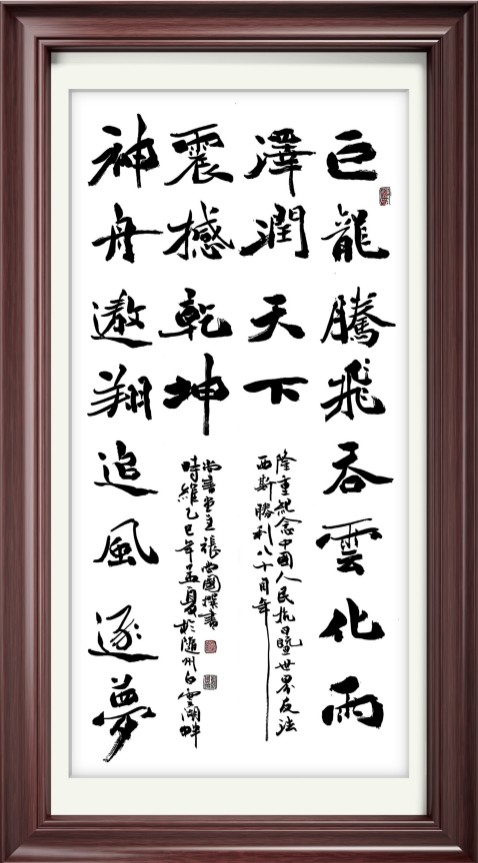 巨龍騰飛吞雲化雨
澤潤天下
隆重紀念中國人民抗日暨世界反法
西斯勝利八十周年
神舟遨翔追風逐夢
震撼乾坤
尚書堂主張國撰書
時維乙巳年孟夏於隨州白雲湖畔